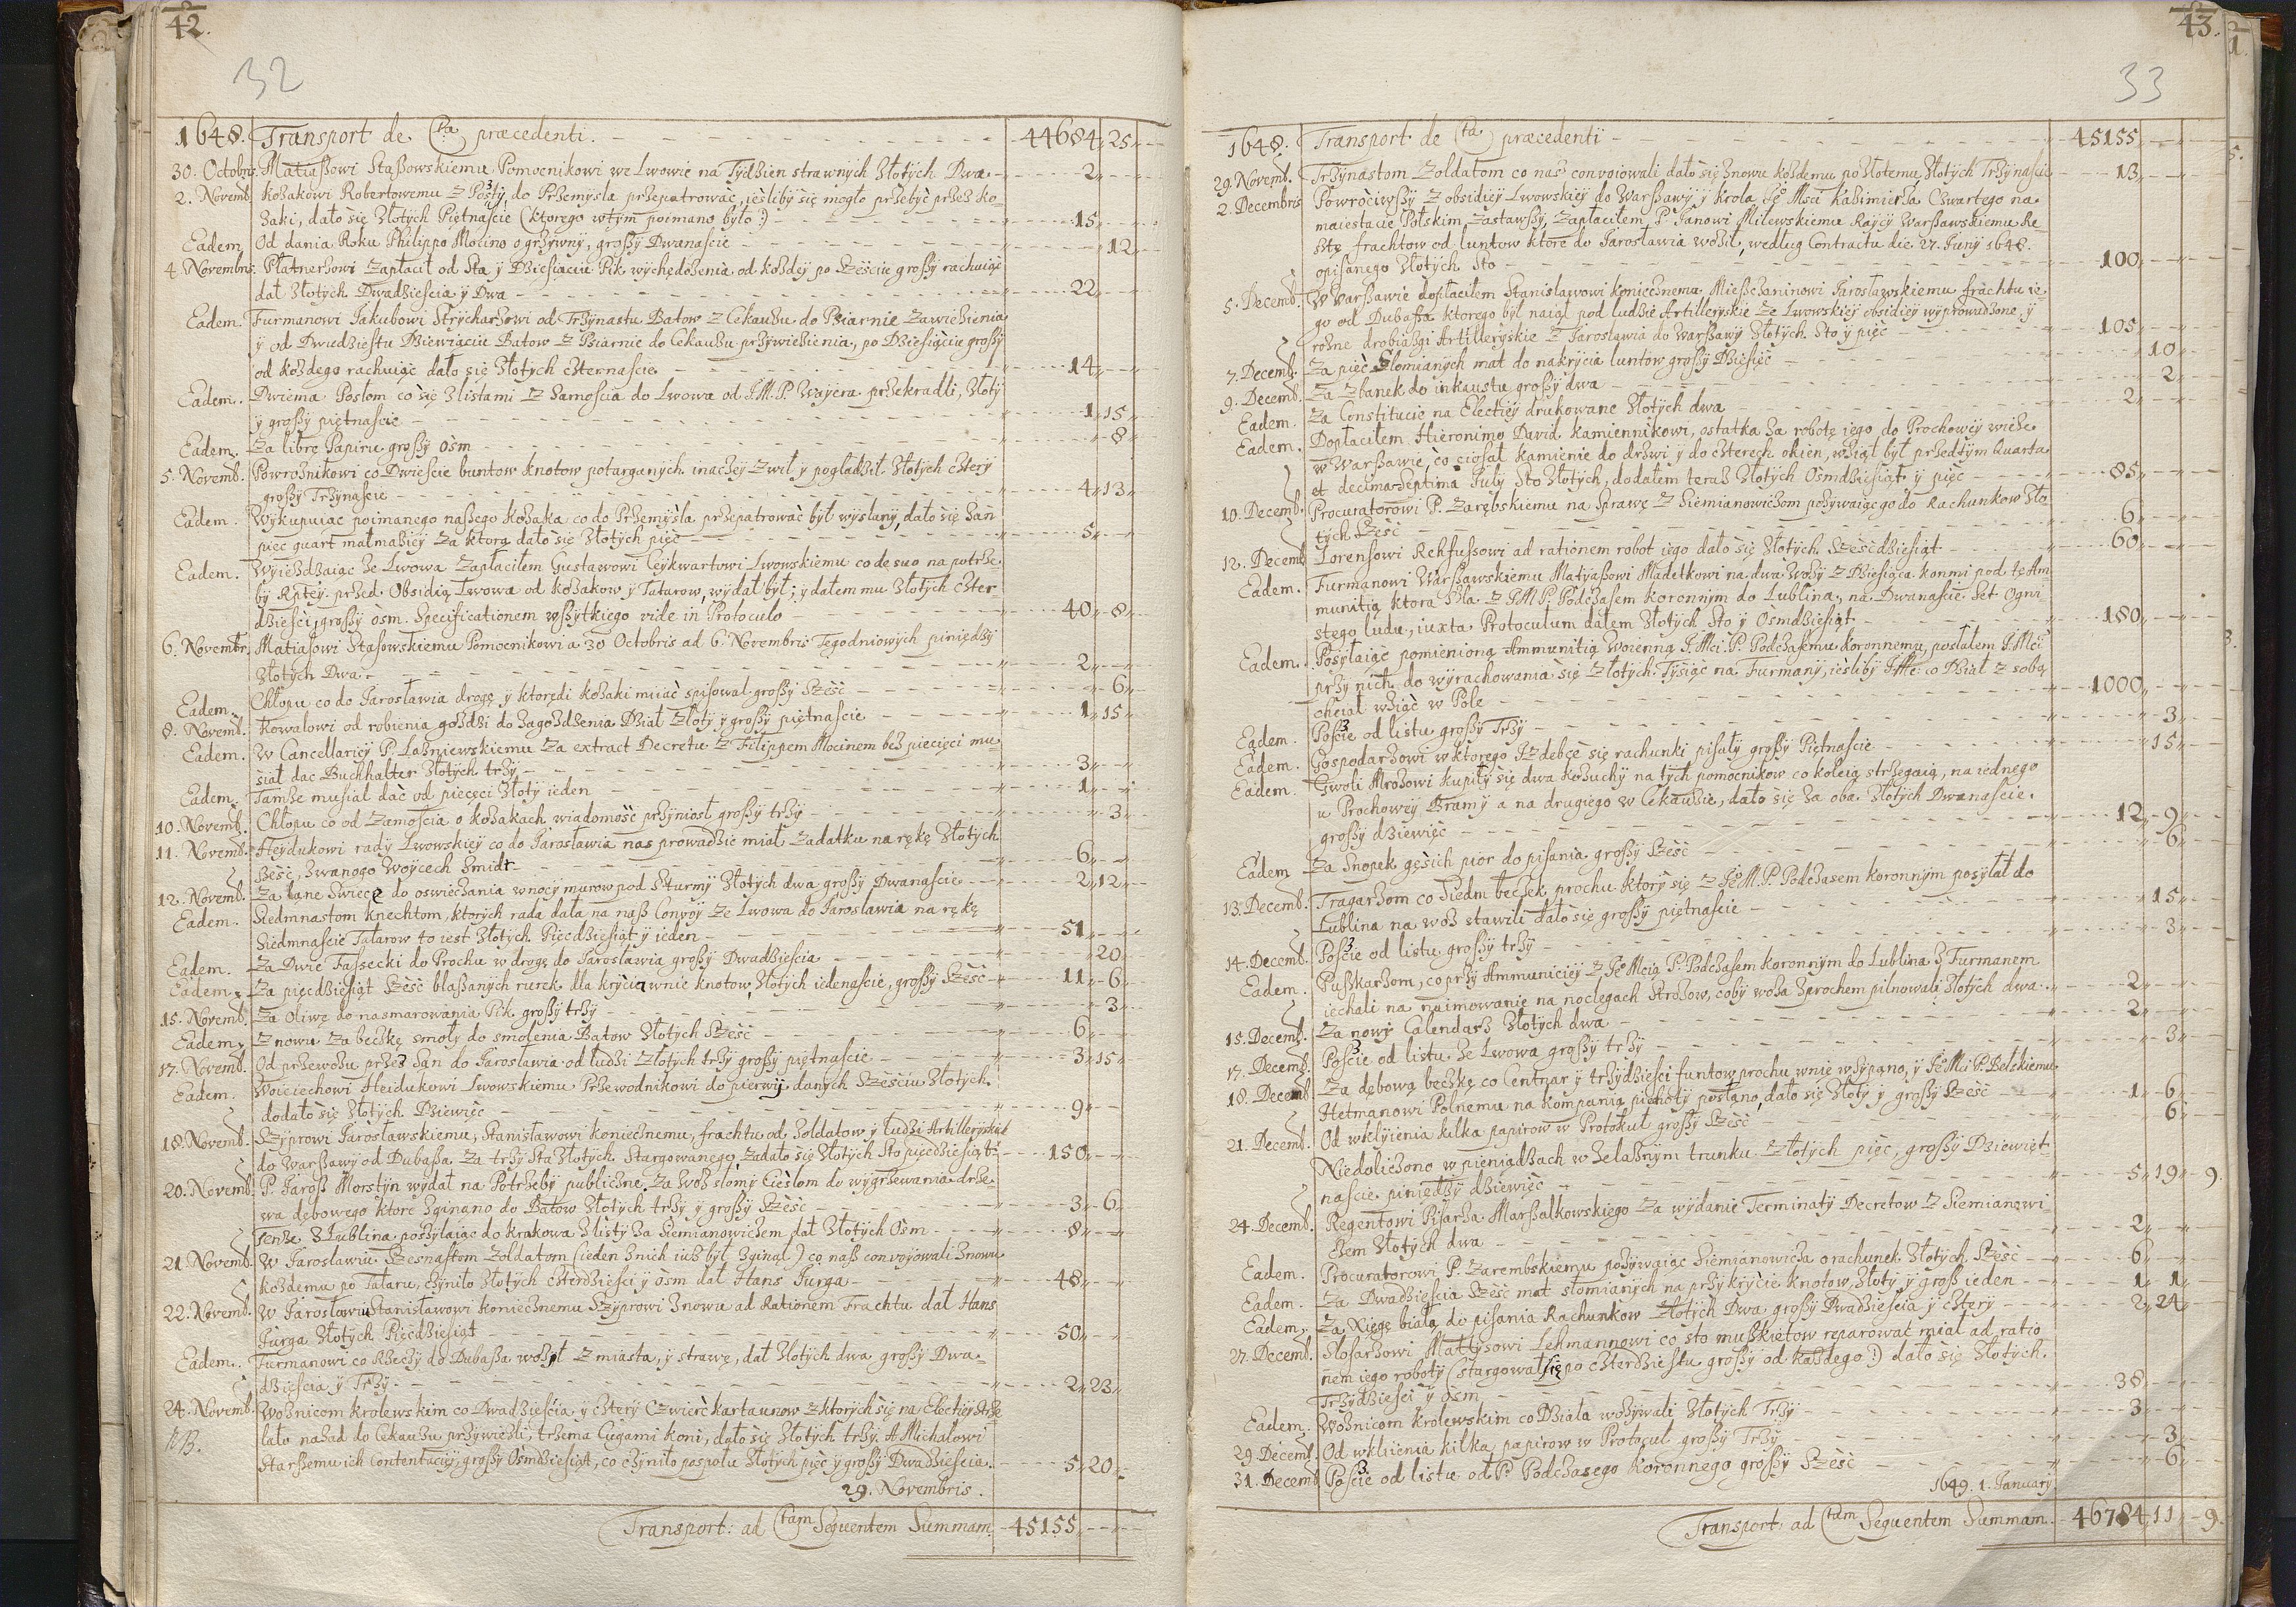 42.
32
1648. Transport de Cta præcedenti. 44684 25
30. Octobris. Matiaßowi Staßowskiemu Pomocnikowi we Lwowie na Tydzien strawnych Złotych Dwa 2
2. Novemb. Kozakowi Robertowemu z Poszty, do Przemysla przepatrować, ieśliby się mogło przebyć przez Ko-
zaki, dało się Złotych Piętnaście (ktorego wtym poimano było:) 15
Eadem Od dania Roku Philippo Mocino o grzywny, großy Dwanaście 12
4. Novembris. Płatnerzowi zapłacił od Sta y Dziesiąciu Pik wychędożenia od każdey po Sześciu großy rachuiąc
dał Złotych Dwadzieścia y Dwa 22
Eadem. Furmanowi Jakubowi Strycharzowi od Trzynastu Batow z Cekauzu do Psiarnie Zawiezienia
y od Dwudziestu Dziewiąciu Batow z Psiarnie do Cekauzu przywiezienia, po Dziesiąciu großy
od każdego rachuiąc dało się Złotych czternaście 14
Eadem. Dwiema Posłom co się z listami z Zamościa do Lwowa od J.M.P. Wayera przekradli, Złoty
y großy piętnaście 1 15
Eadem. Za librę Papiru großy ośm 8
5. Novemb. Powroznikowi co Dwieście buntow knotow potarganych inaczey zwił y pogładził Złotych cztery
großy Trzynaście 4 13
Eadem. Wykupuiąc poimanego naßego Kozaka co do Przemyśla przepatrować był wysłany, dało się zań
pięć quart małmaziey za ktorą dało się Złotych pięć 5
Eadem. Wyieżdzaiąc ze Lwowa Zapłaciłem Gustawowi Ceykwartowi Lwowskiemu co de suo na potrze-
by Rptey. przed Obsidią Lwowa od Kozakow y Tatarow, wydał był; y dałem mu Złotych czter-
dzieści, großy ośm. Specificationem wszytkiego vide in Protocolo 40 8
6. Novembr. Matiasowi Stasowskiemu Pomocnikowi a 30 Octobris ad 6. Novembris Tegodniowych piniędzy
Złotych Dwa. 2
Eadem Chłopu co do Jarosławia drogę y ktorędi kozaki miiać spisował großy Sześć 6
8. Novemb. Kowalowi od robienia gożdzi do zagożdżenia Dział Złoty y großy piętnaście 1 15
Eadem. W Cancellariey P. Lasniewskiemu za extract Decretu z Filippem Mocinem bez pieczęci mu-
siał dać Buchhalter Złotych trzy 3
Eadem. Tamże musiał dać od pieczęci Złoty ieden 1
10. Novemb. Chłopu co od Zamościa o kozakach wiadomość przyniosł großy trzy 3
11. Novemb. Heydukowi rady Lwowskiey co do Jarosławia nas prowadzić miał Zadatku na rękę Złotych
Sześć, zwanego Woyciech Smidt 6
12. Novemb. Za łane Swiece do oswiecania wnocy murow pod Szturmy Złotych dwa großy Dwanaście 2 12
Eadem. Siedmnastom Knechtom, ktorych rada dała na naß Convoy ze Lwowa do Jarosławia na rękę
Siedmnaście Talarow to iest Złotych Pięćdziesiąt y ieden 51
Eadem. Za Dwie Fassecki do Prochu w drogę do Jarosławia großy Dwadzieścia 20
Eadem. Za pięćdziesiąt Sześć blaßanych rurek dla kryćia wnie knotow, Złotych iedenaście, großy Sześć 11 6
15. Novemb. Za Oliwę do nasmarowania Pik großy trzy 3
Eadem. Znowu za beczkę smoły do smolenia Batow Złotych Sześć 6
17. Novemb. Od przewozu przez San do Jarosławia od ludzi Złotych trzy großy piętnaście 3 15
Eadem. Woiciechowi Heidukowi Lwowskiemu Przewodnikowi do pierwij danych Sześciu Złotych
dodało się Złotych Dziewięć 9
18. Novemb. Szyprowi Jarosławskiemu, Stanisławowi Koniecznemu, frachtu od Zołdatow y ludzi Artilleryskich
do Warßawy od Dubaßa za trzy Sta Złotych Stargowanego, zadało się Złotych Sto pięćdziesiąt 150
20. Novemb. P. Jaroß Morstyn wydał na Potrzeby publiczne Za woz słomy Cieślom do wygrzewania drze-
wa dębowego ktore zginano do Batow Złotych trzy y großy Sześć 3 6
Tenże z Lublina poszylaiąc do Krakowa z listy za Siemianowiczem dał Złotych Ośm 8
21. Novemb. W Jarosławiu Szesnastom Zołdatom (ieden znich iuż był zginął) co naß convoyowali znowu
każdemu po Talaru, czyniło Złotych czterdzieści y ośm dał Hans Jurga 48
22. Novemb. W Jarosławiu Stanisławowi Koniecznemu Szyprowi znowu ad Rationem Frachtu dał Hans
Jurga Złotych Pięćdziesiąt 50
Eadem. Furmanowi co Rzeczy do Dubaßa woził z miasta, y strawę, dał Złotych dwa großy Dwa-
dzieścia y Trzy. 2 23
24. Novemb. Woznicom krolewskim co Dwadzieścia y cztery Czwierć kartaunow z ktorych się na Electiey strze-
NB. lało nazad do Cekauzu przywiezli, trzema Cugami koni, dało się Złotych trzy. A Michałowi
Starszemu ich Contentaciy, großy Ośmdziesiąt, co czyniło pospołu Złotych pięć y großy Dwadzieścia. 5 20
29. Novembris.
Transport: ad Ctam Sequentem Summam. 45155
43.
33
1648. Transport de Cta præcedenti 45155
29. Novemb. Trzynastom Zołdatom co nas convoiowali dało się znowu każdemu po złotemu Złotych Trzynaście 13
2. Decembris Powrociwßy z obsidiey Lwowskiey do Warßawy y Krola Je° Mści Kazimierza Czwartego na
maiestacie Polskim zastawßy, zapłaciłem P. Janowi Milewskiemu Raycy Warßawskiemu Re-
sztę frachtow od luntow ktore do Jarosławia woził, według Contractu die 27. Juny 1648.
opisanego Złotych Sto 100
5. Decemb. W Warßawie dopłaciłem Stanisławowi Koniecznemu Mießczaninowi Jarosławskiemu frachtu ie-
go od Dubaßa ktorego był naiął pod ludzie Artilleryskie ze Lwowskiey obsidiey wyprowadzone, y
rozne drobiazgi Artilleryskie z Jarosławia do Warßawy Złotych Sto y pięć 105
7. Decemb. Za pięć Słomianych mat do nakrycia luntow großy Dziesięć 10
9. Decemb. Za zbanek do inkaustu großy dwa 2
Eadem. Za Constitucie na Electiey drukowane Złotych dwa 2
Eadem. Dopłaciłem Hieronimo David Kamiennikowi, ostatka za robotę iego do Prochowey wieże
w Warßawie, co ciosał kamienie do drzwi y do czterech okien, wziął był przedtym Quarta
et decima Septima July Sto Złotych, dodałem teraz Złotych Ośmdziesiąt y pięć 85
10. Decemb. Procuratorowi P. Zarębskiemu na Sprawę z Siemianowiczom pozywaiąc go do Rachunkow Zło-
tych Sześć 6
12. Decemb. Lorensowi Rehfussowi ad rationem robot iego dało się Złotych Sześćdziesiąt 60
Eadem. Furmanowi Warßawskiemu Matyaßowi Madetkowi na dwa Wozy z Dziesiącą konmi pod tę Am-
munitią ktora szła z JM P. Podczasem koronnym do Lublina, na Dwanaście Set Ogni-
stego ludu, iuxta Protoculum dałem Złotych Sto y Ośmdziesiąt 180
Eadem. Posyłaiąc pomienioną Ammunitią Woienną J.Mci P. Podczasemu koronnemu, posłałem J.Mci
przy nich do wyrachowania się Złotych Tysiąc na Furmany, ieśliby JMć co Dział z sobą
chciał wziąć w Pole 1000
Eadem. Poscie od listu großy Trzy 3
Eadem. Gospodarzowi w ktorego Izdebce się rachunki pisały großy Piętnaście 15
Eadem. Gwoli Mrozowi kupiły się dwa Kożuchy na tych pomocnikow co koleią strzegaią, na iednego
u Prochowey Bramy a na drugiego w Cekauzie, dało się za oba Złotych Dwanaście.
großy dziewięć 12 9
Eadem Za Snopek gęsich pior do pisania großy Sześć 6
13. Decemb. Tragarzom co Siedm beczek prochu ktory się z Je° M. P. Podczasem koronnym posyłał do
Lublina na woz stawili dało się großy piętnaście 15
14. Decemb. Poscie od listu großy trzy 3
Eadem. Pußkarzom, co przy Ammuniciey z Je° Mcią P. Podczasem koronnym do Lublina z Furmanem
iechali na naimowanie na noclegach Strozow, coby woza z prochem pilnowali Złotych dwa 2
15. Decemb. Za nowy Calendarz Złotych dwa 2
17. Decemb. Poscie od listu ze Lwowa großy trzy 3
18. Decemb Za dębową beczkę co Centnar y trzydzieści funtow prochu wnię wsypano, y Je° Mci P. Belskiemu
Hetmanowi Polnemu na Kompanią piechoty posłano, dało się Złoty y großy Sześć 1 6
21. Decemb. Od wklyienia kilka papirow w Protokuł großy Sześć 6
Niedoliczono w pieniądzach w żelaznym trunku Złotych pięć, großy Dziewięt-
naście piniędzy dziewięć 5 19 9
24. Decemb. Regentowi Pisarza Marßałkowskiego za wydanie Terminaty Decretow z Siemianowi-
czem Złotych dwa 2
Eadem. Procuratorowi P. Zarembskiemu pozywaiąc Siemianowicza o rachunek Złotych Sześć 6
Eadem. Za Dwadzieścia Sześć mat słomianych na przykrycie knotow, Złoty y groß ieden 1 1
Eadem. Za Xięgę białą do pisania Rachunkow Złotych Dwa großy Dwadzieścia y cztery 2 24
27. Decemb. Slosarzowi Mattysowi Lehmannowi co sto mußkietow reparować miał ad ratio
nem iego roboty (stargował się po czterdziestu großy od każdego:) dało się Złotych.
Trzydzieści y ośm 38
Eadem. Woznicom krolewskim co Działa wozywali Złotych Trzy 3
29. Decemb. Od wklsienia kilka papirow w Protocuł großy Trzy 3
31. Decemb. Poscie od listu od P. Podczasego Koronnego großy Sześć 6
1649. 1. January
Transport ad Ctam Sequentem Summam. 46784 11 9.